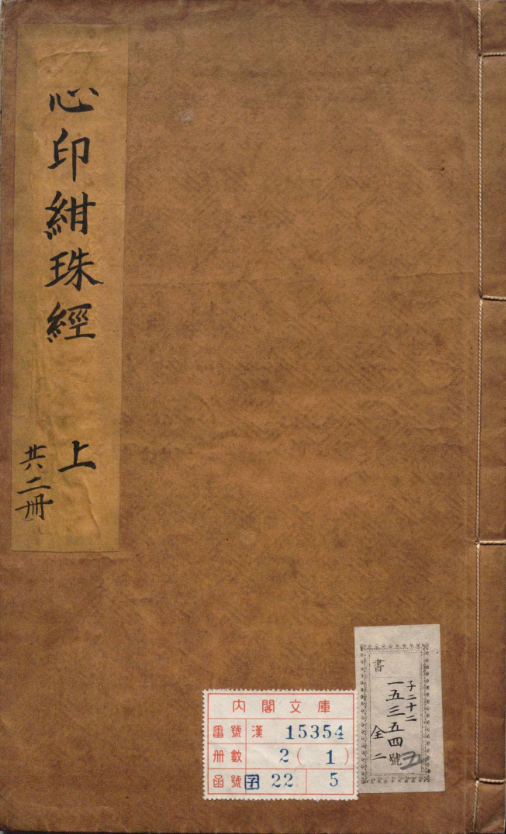 心印紺珠經 上
共二册
書
子二十二
一五三五四號
全二
五
内閣文庫
番號 漢 15354
册數 2(1)
函號 子 22 5